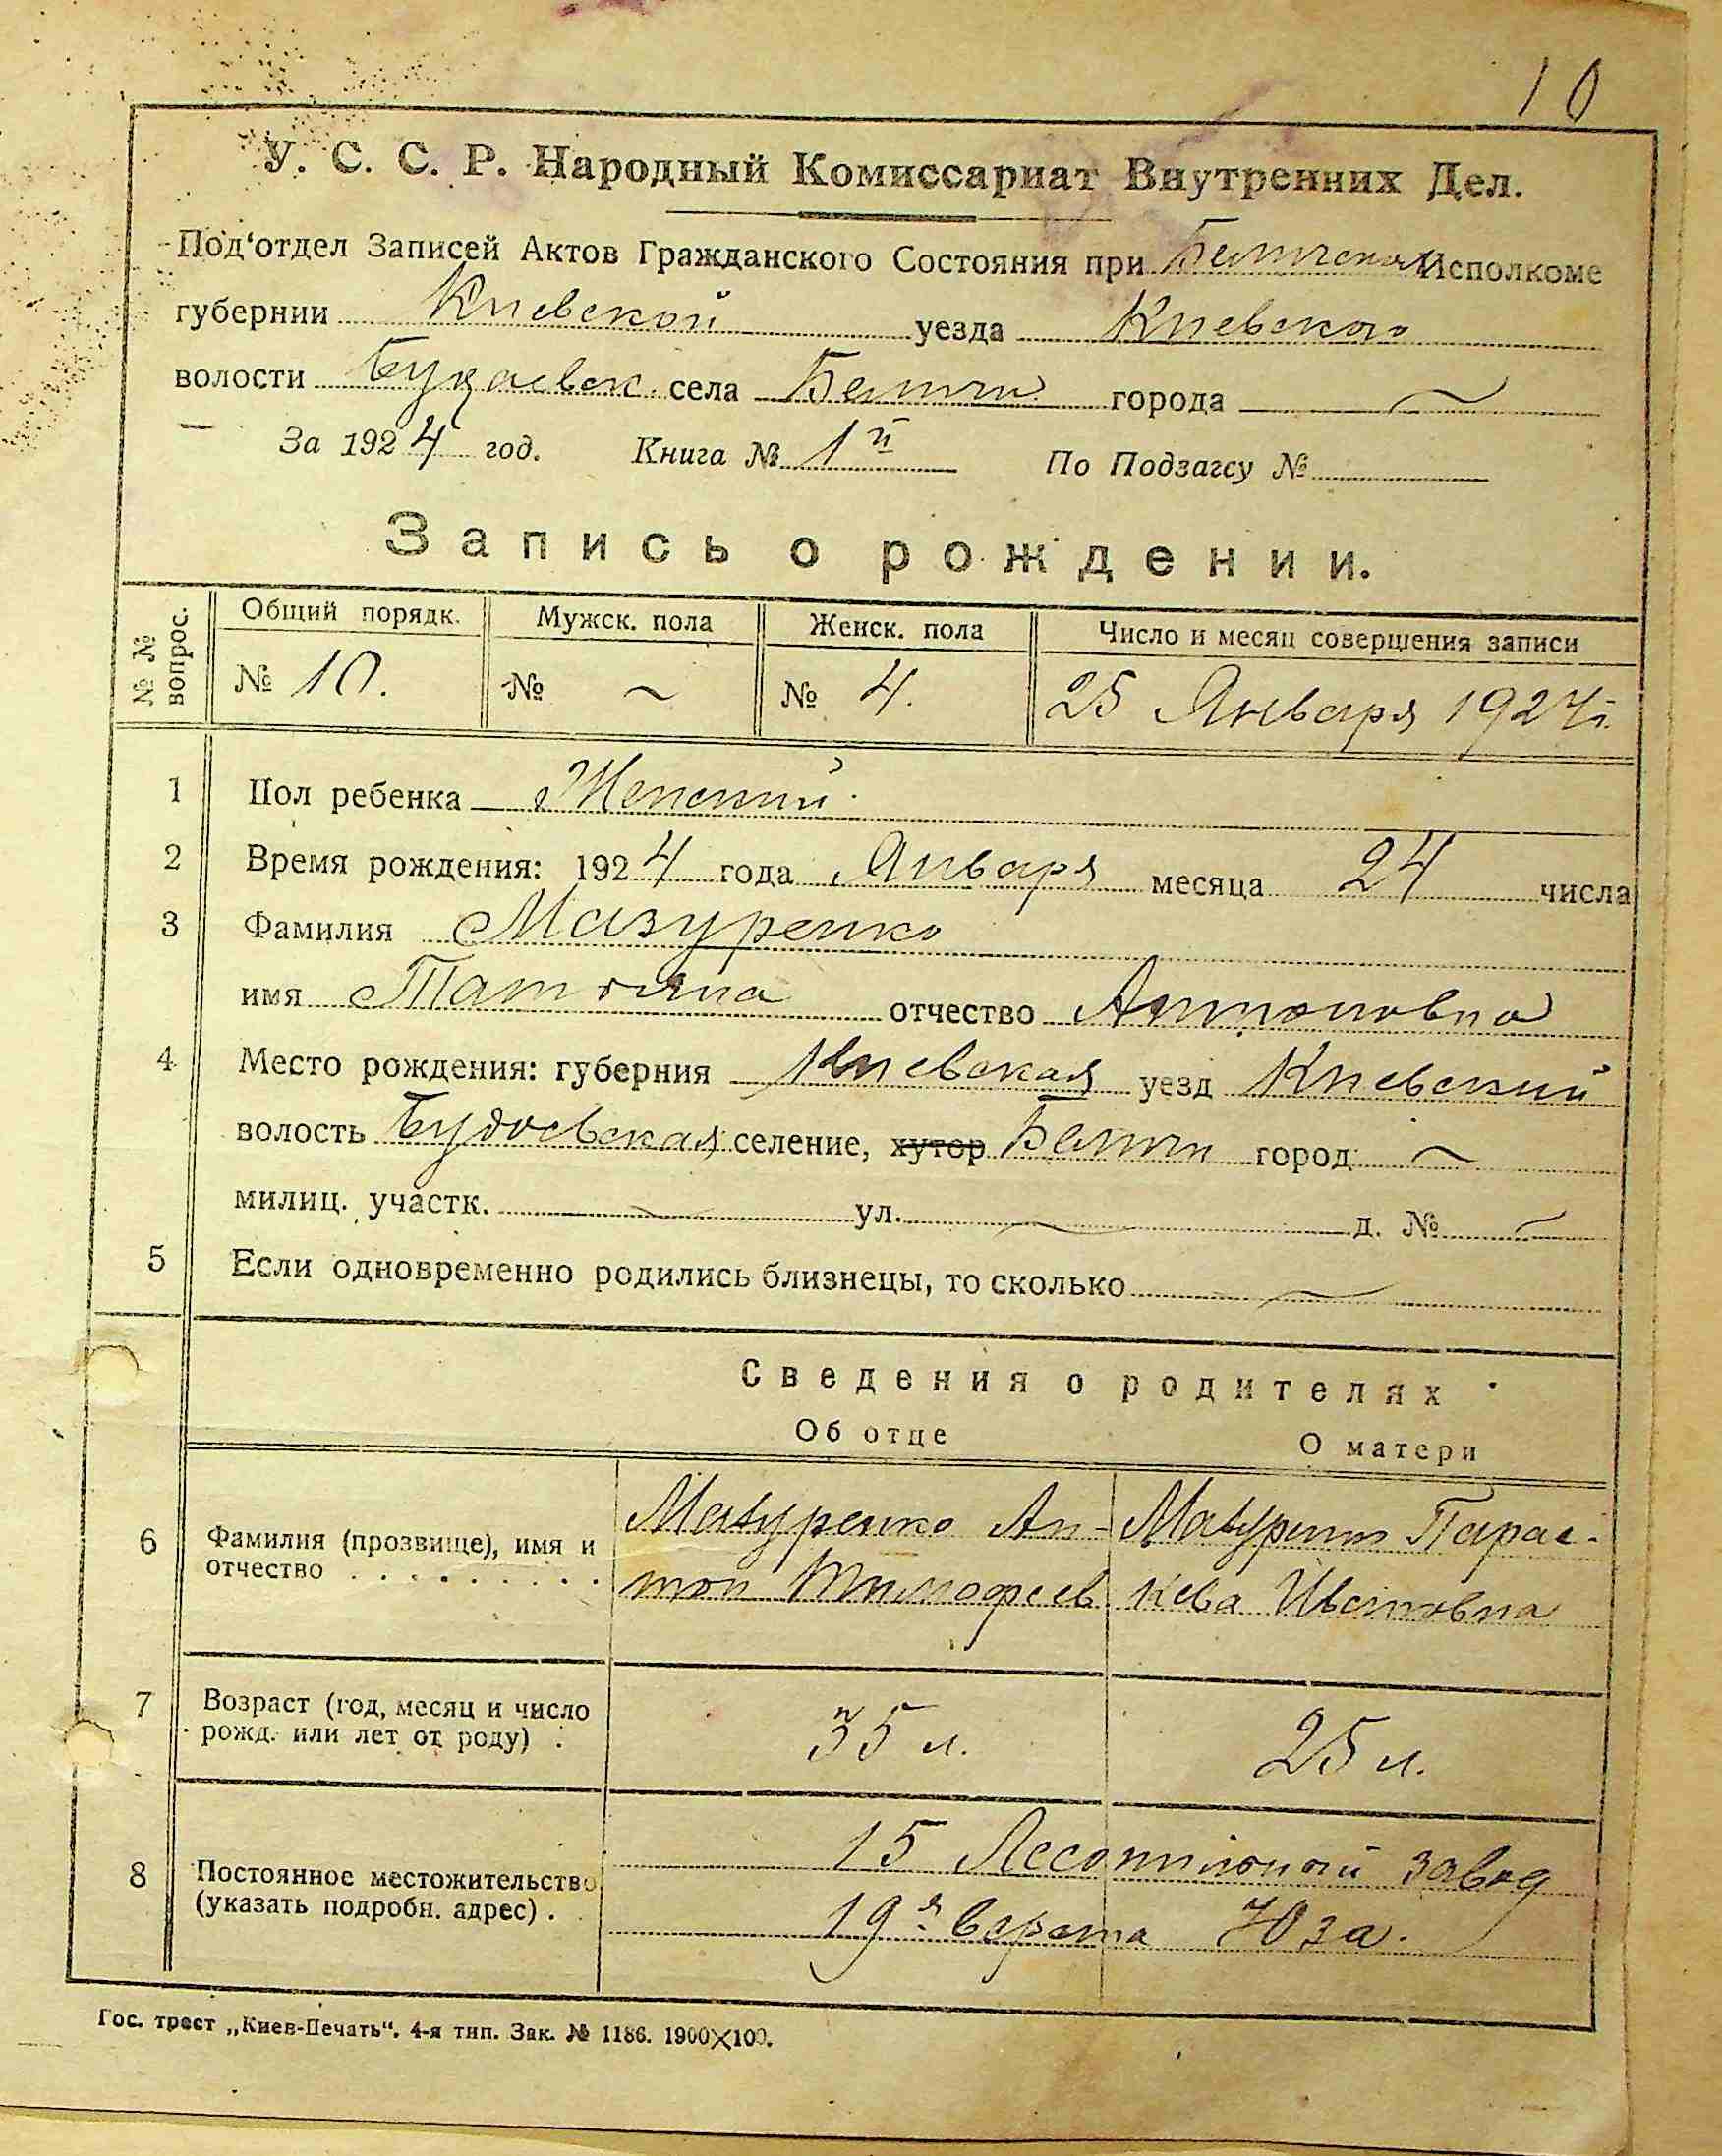 10
У. С. С. Р. Народный Комиссариат Внутренних Дел.
Под'отдел Записей Актов Гражданского Состояния при Исполкоме
губернии Киевской уезда Киевского
волости Будаевск. села города ~
За 1924 год. Книга № 1й По Подзагсу №
Запись о рождении.
№ № вопрос. Общий порядк. Мужск. пола Женск. пола Число и месяц совершения записи
№ 10. № ~ № 4. 25 Января 1924г.
1 Пол ребенка Женский.
2 Время рождения: 1924 года Января месяца 24 числа
3 Фамилия Мазуренко
имя Татьяна отчество Антоновна
4 Место рождения: губерния Киевская уезд Киевский
волость Будаевская селение, хутор город ~
милиц. участк. ~ ул. ~ д. № ~
5 Если одновременно родились близнецы, то сколько ~
Сведения о родителях
Об отце О матери
6 Фамилия (прозвище), имя и Мазуренко Ан- Мазуренко Парас-
отчество . . . . . . . . . тон Тимофеев кева
7 Возраст (год, месяц и число
рожд. или лет от роду) . 35 л. 25 л.
8 Постоянное местожительство 15 Лесопильный завод
(указать подробн. адрес) . 19я верста ЮЗа.
Гос. трест „Киев-Печать“. 4-я тип. Зак. № 1186. 1900×100.